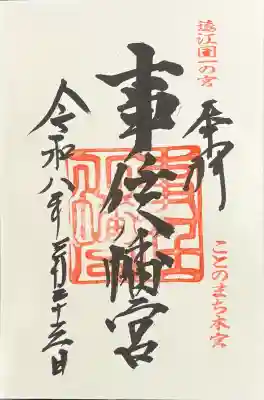 遠江国一の宮
ことのまち本宮
奉拝
事任八幡宮
令和八年三月二十三日